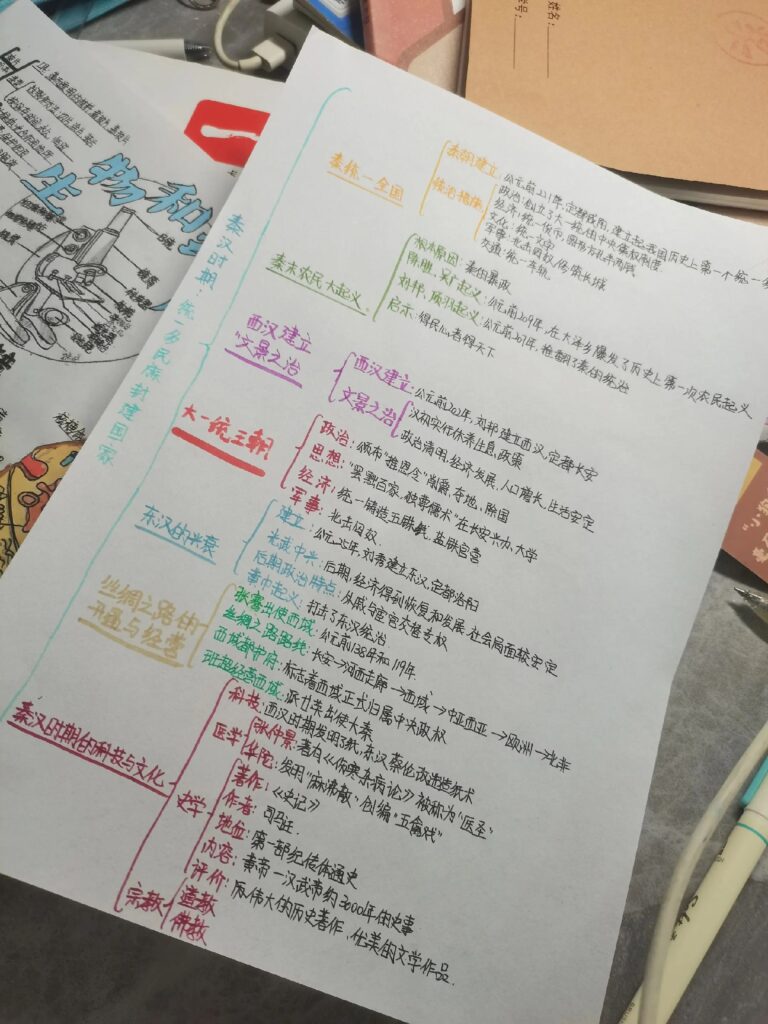 姓名：
生物和
秦汉时期：统一多民族封建国家
秦统一全国
秦朝建立：公元前221年，定都咸阳，建立起我国历史上第一个统一多
统治措施
政治：创立了大一统的中央集权制度
经济：统一货币，圆形方孔半两钱
文化：统一文字
军事：北击匈奴，修筑长城
交通：统一车轨
秦末农民大起义
根本原因：秦的暴政
陈胜，吴广起义：公元前209年，在大泽乡爆发了历史上第一次农民起义
刘邦，项羽起义：公元前207年，推翻了秦的统治
启示：得民心者得天下
西汉建立
"文景之治
西汉建立：公元前202年，刘邦建立西汉，定都长安
文景之治
汉初实行休养生息政策
政治清明，经济发展，人口增长，生活安定
大一统王朝
政治：颁布"推恩令"削爵、夺地、除国
思想："罢黜百家，独尊儒术"在长安兴办太学
经济：统一铸造五铢钱，盐铁官营
军事：北击匈奴
东汉的兴衰
建立：公元25年，刘秀建立东汉，定都洛阳
光武中兴：后期，经济得到恢复和发展，社会局面较安定
后期政治特点：外戚与宦官交替专权
黄巾起义：打击了东汉统治
丝绸之路的
开通与经营
张骞出使西域：公元前138年和119年
丝绸之路路线：长安→河西走廊→西域→中亚西亚→欧洲
西域都护府：标志着西域正式归属中央政权
班超经营西域：派甘英出使大秦
秦汉时期的科技与文化
科技：西汉时期发明了纸，东汉蔡伦改进造纸术
医学
张仲景：著有《伤寒杂病论》被称为"医圣"
华陀：发明"麻沸散"，创编"五禽戏"
史学
著作：《史记》
作者：司马迁
地位：第一部纪传体通史
内容：黄帝一汉武帝约3000年的史事
评价：历伟大的历史著作，优美的文学作品.
宗教
道教
佛教